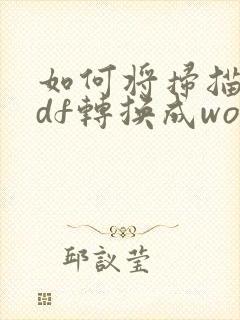 如何将掃描
df轉換成wo
邱議莹